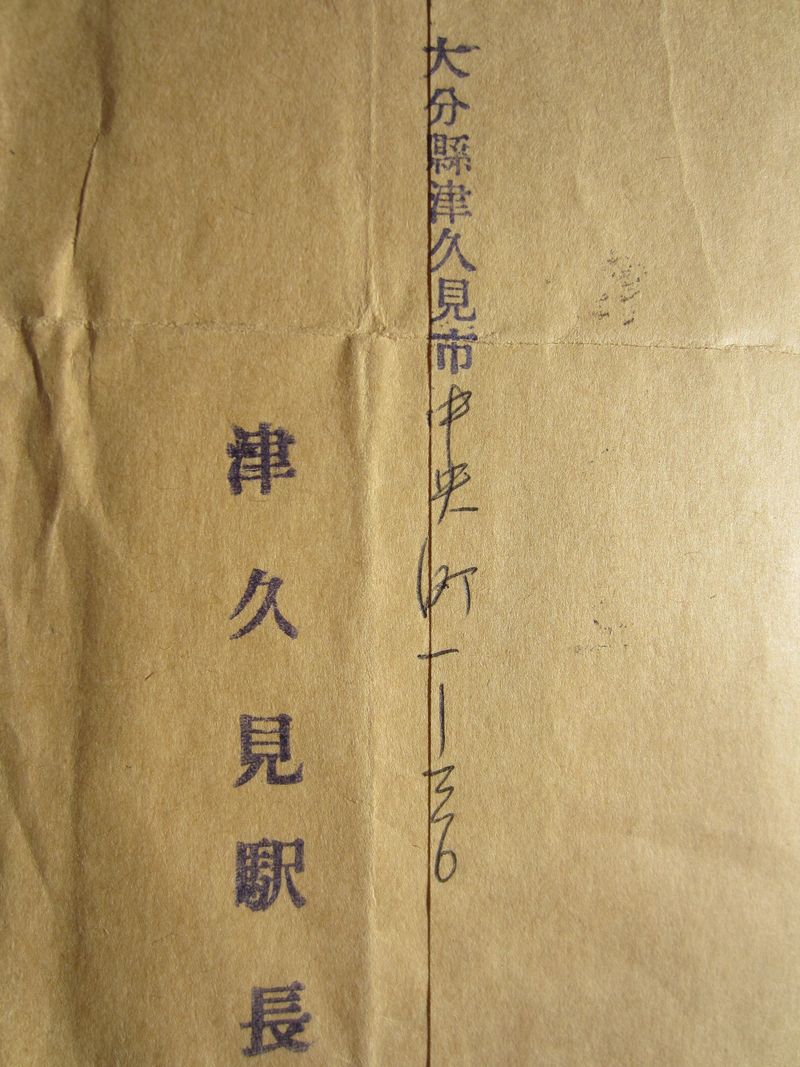 大分縣津久見市中央町一ー三六
津久見駅長